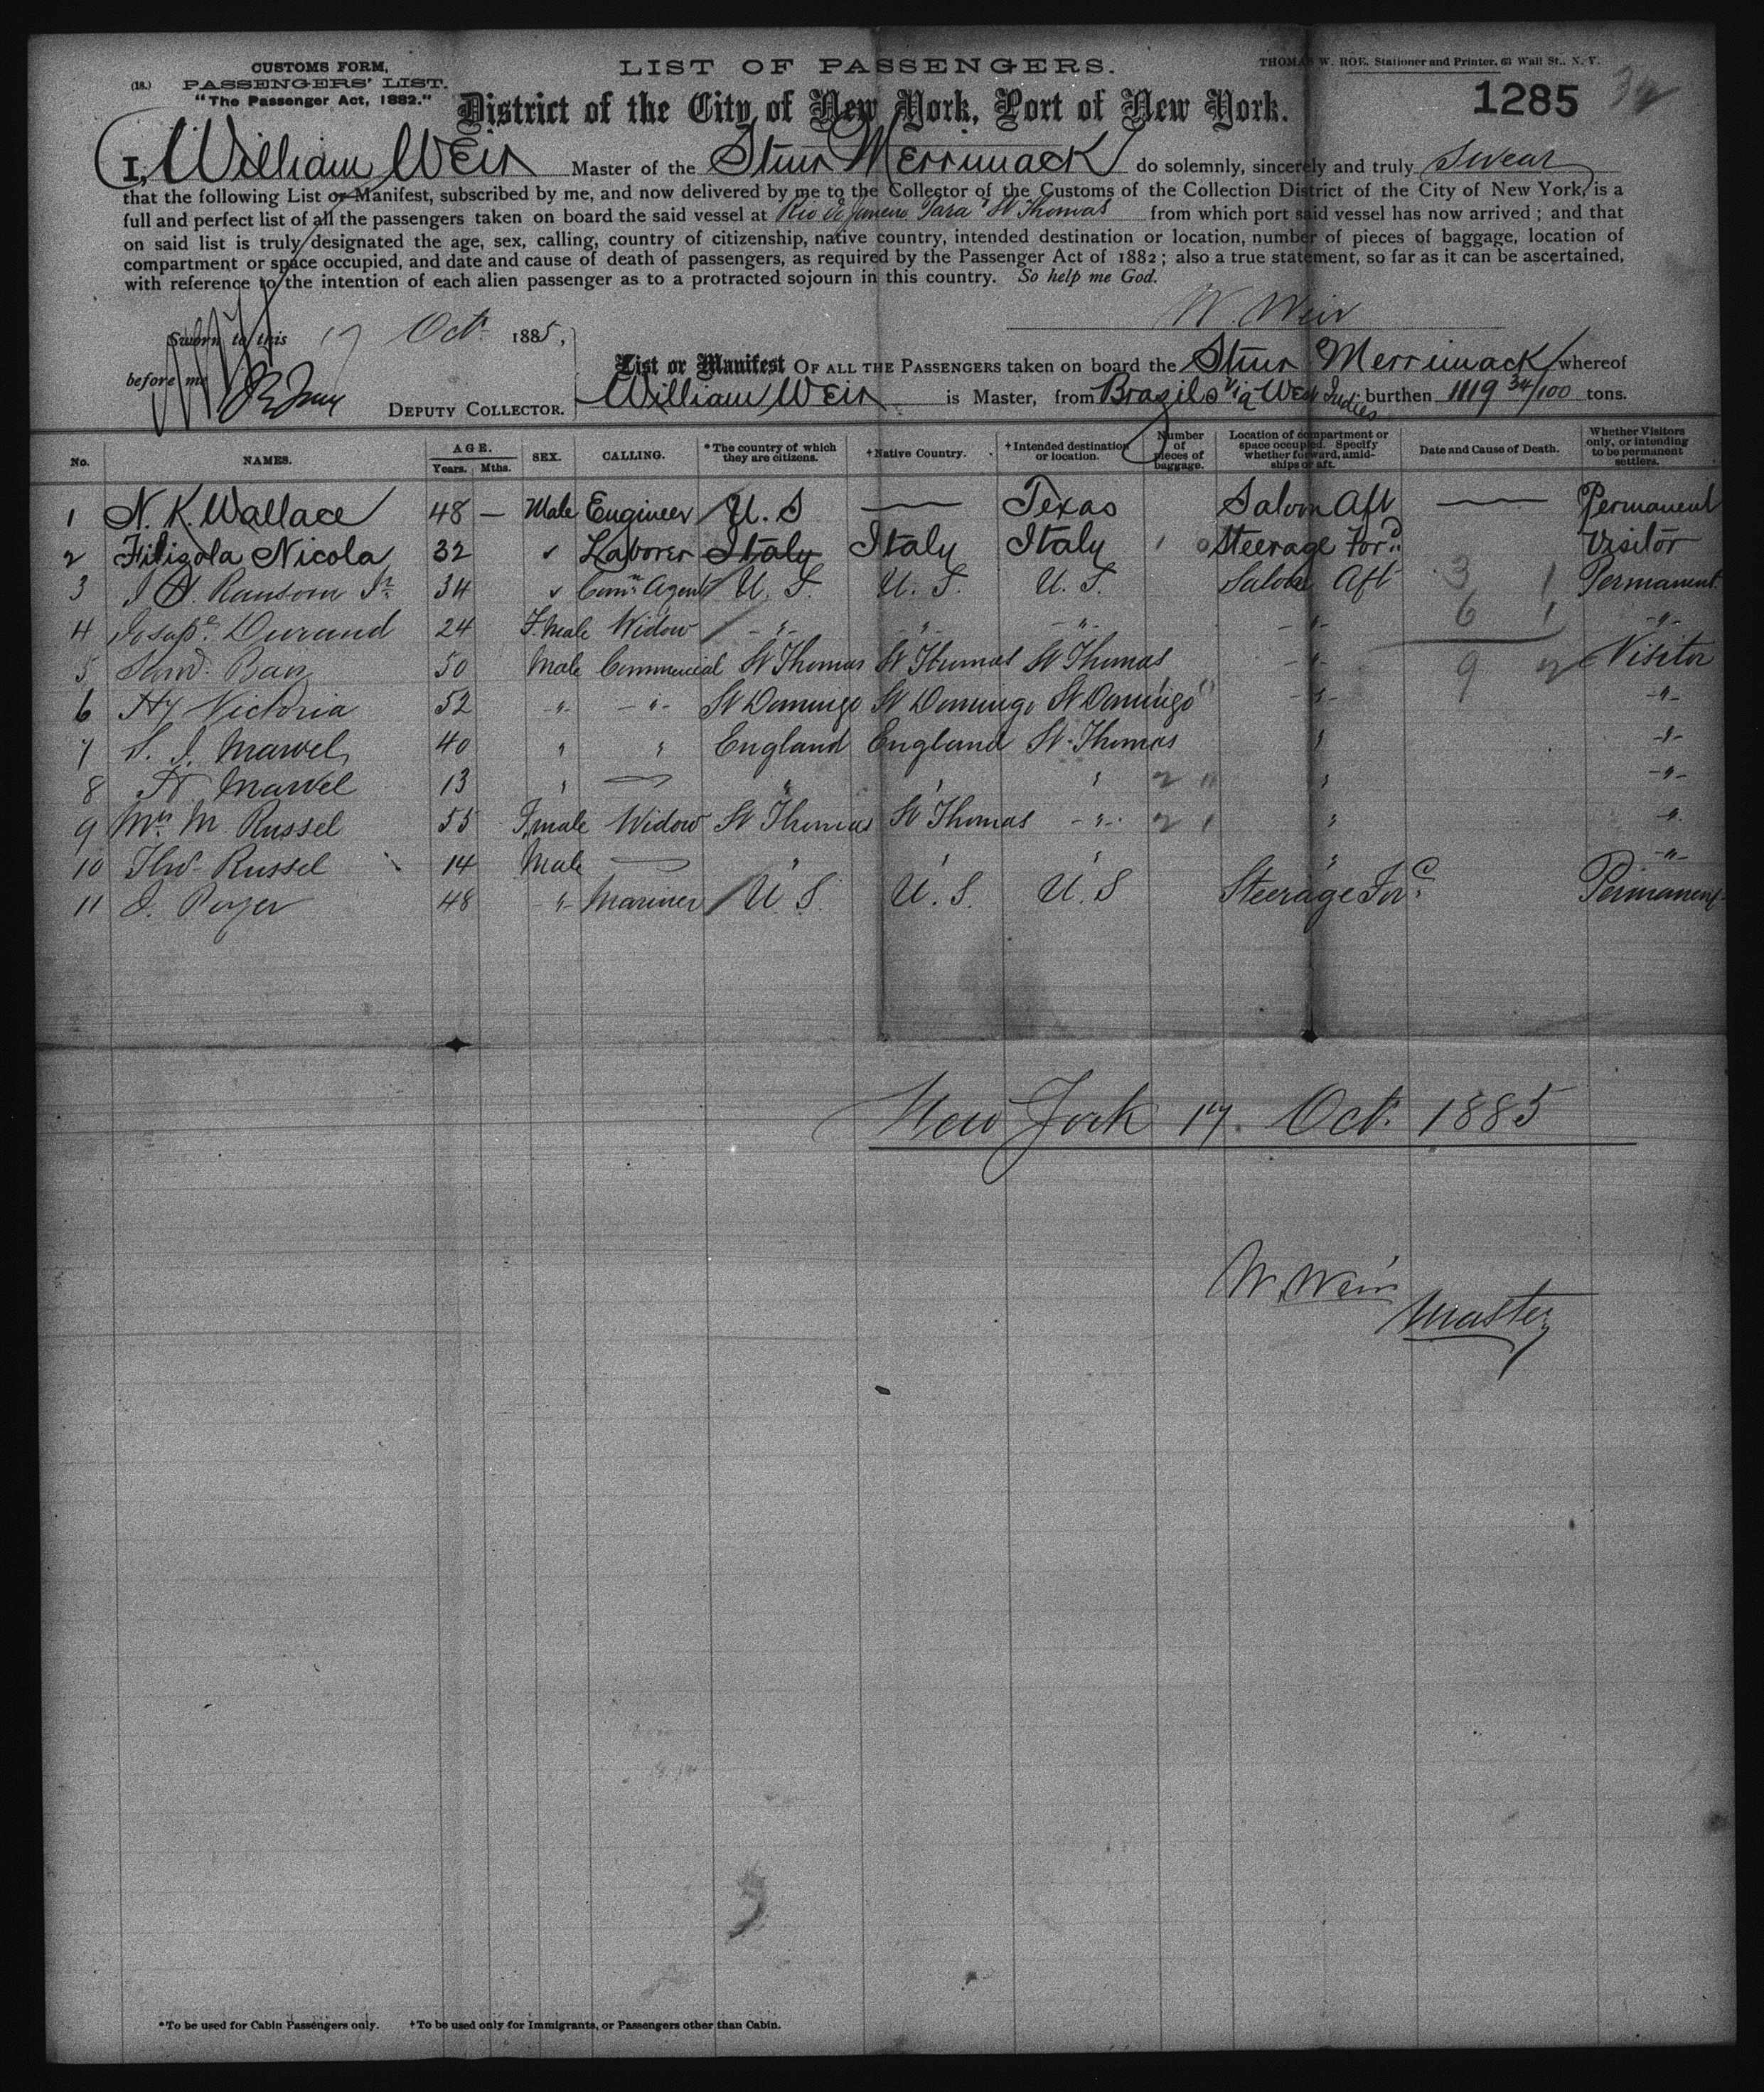 CUSTOMS FORM,
(18.) PASSENGERS' LIST.
"The Passenger Act, 1882."
LIST OF PASSENGERS.
THOMAS W. ROE, Stationer and Printer, 63 Wall St., N. Y.
District of the City of New York, Port of New York.
1285
I, William Weir Master of the Stmr Merrimack do solemnly, sincerely and truly swear
that the following List or Manifest, subscribed by me, and now delivered by me to the Collector of the Customs of the Collection District of the City of New York, is a
full and perfect list of all the passengers taken on board the said vessel at Rio de Janeiro Para & St Thomas from which port said vessel has now arrived; and that
on said list is truly designated the age, sex, calling, country of citizenship, native country, intended destination or location, number of pieces of baggage, location of
compartment or space occupied, and date and cause of death of passengers, as required by the Passenger Act of 1882; also a true statement, so far as it can be ascertained,
with reference to the intention of each alien passenger as to a protracted sojourn in this country. So help me God.
W. Weir
Sworn to this 17 Oct. 1885,
before me
DEPUTY COLLECTOR.
List or Manifest OF ALL THE PASSENGERS taken on board the Stmr Merrimack whereof
William Weir is Master, from Brazil via West Indies burthen 1119 34/100 tons.
No. NAMES. AGE. Years. Mths. SEX. CALLING. *The country of which they are citizens. †Native Country. †Intended destination or location. Number of pieces of baggage. Location of compartment or space occupied. Specify whether forward, amidships or aft. Date and Cause of Death. Whether Visitors only, or intending to be permanent settlers.
1 N. K. Wallace 48 — Male Engineer U. S — Texas Saloon Aft — Permanent
2 Filizola Nicola 32 " Laborer Italy Italy Italy 1 Steerage Ford Visitor
3 Ransom Jr 34 " Comn Agent U. S. U. S. U. S. Saloon Aft 3 1 Permanent
4 Durand 24 F.male Widow " " " " 6 1 "
5 50 Male Commercial St Thomas St Thomas St Thomas " 9 2 Visitor
6 Hy Victoria 52 " " St Domingo St Domingo St Domingo " "
7 S. J. Marvel 40 " " England England St Thomas " "
8 H Marvel 13 " — " " " 2 " "
9 Mrs M Russel 55 F.male Widow St Thomas St Thomas " 2 " "
10 Thos Russel 14 Male — " " " " "
11 J. 48 " Mariner U. S. U. S. U. S Steerage Ford Permanent
New York 17. Oct. 1885
W. Weir
Master
*To be used for Cabin Passengers only. †To be used only for Immigrants, or Passengers other than Cabin.